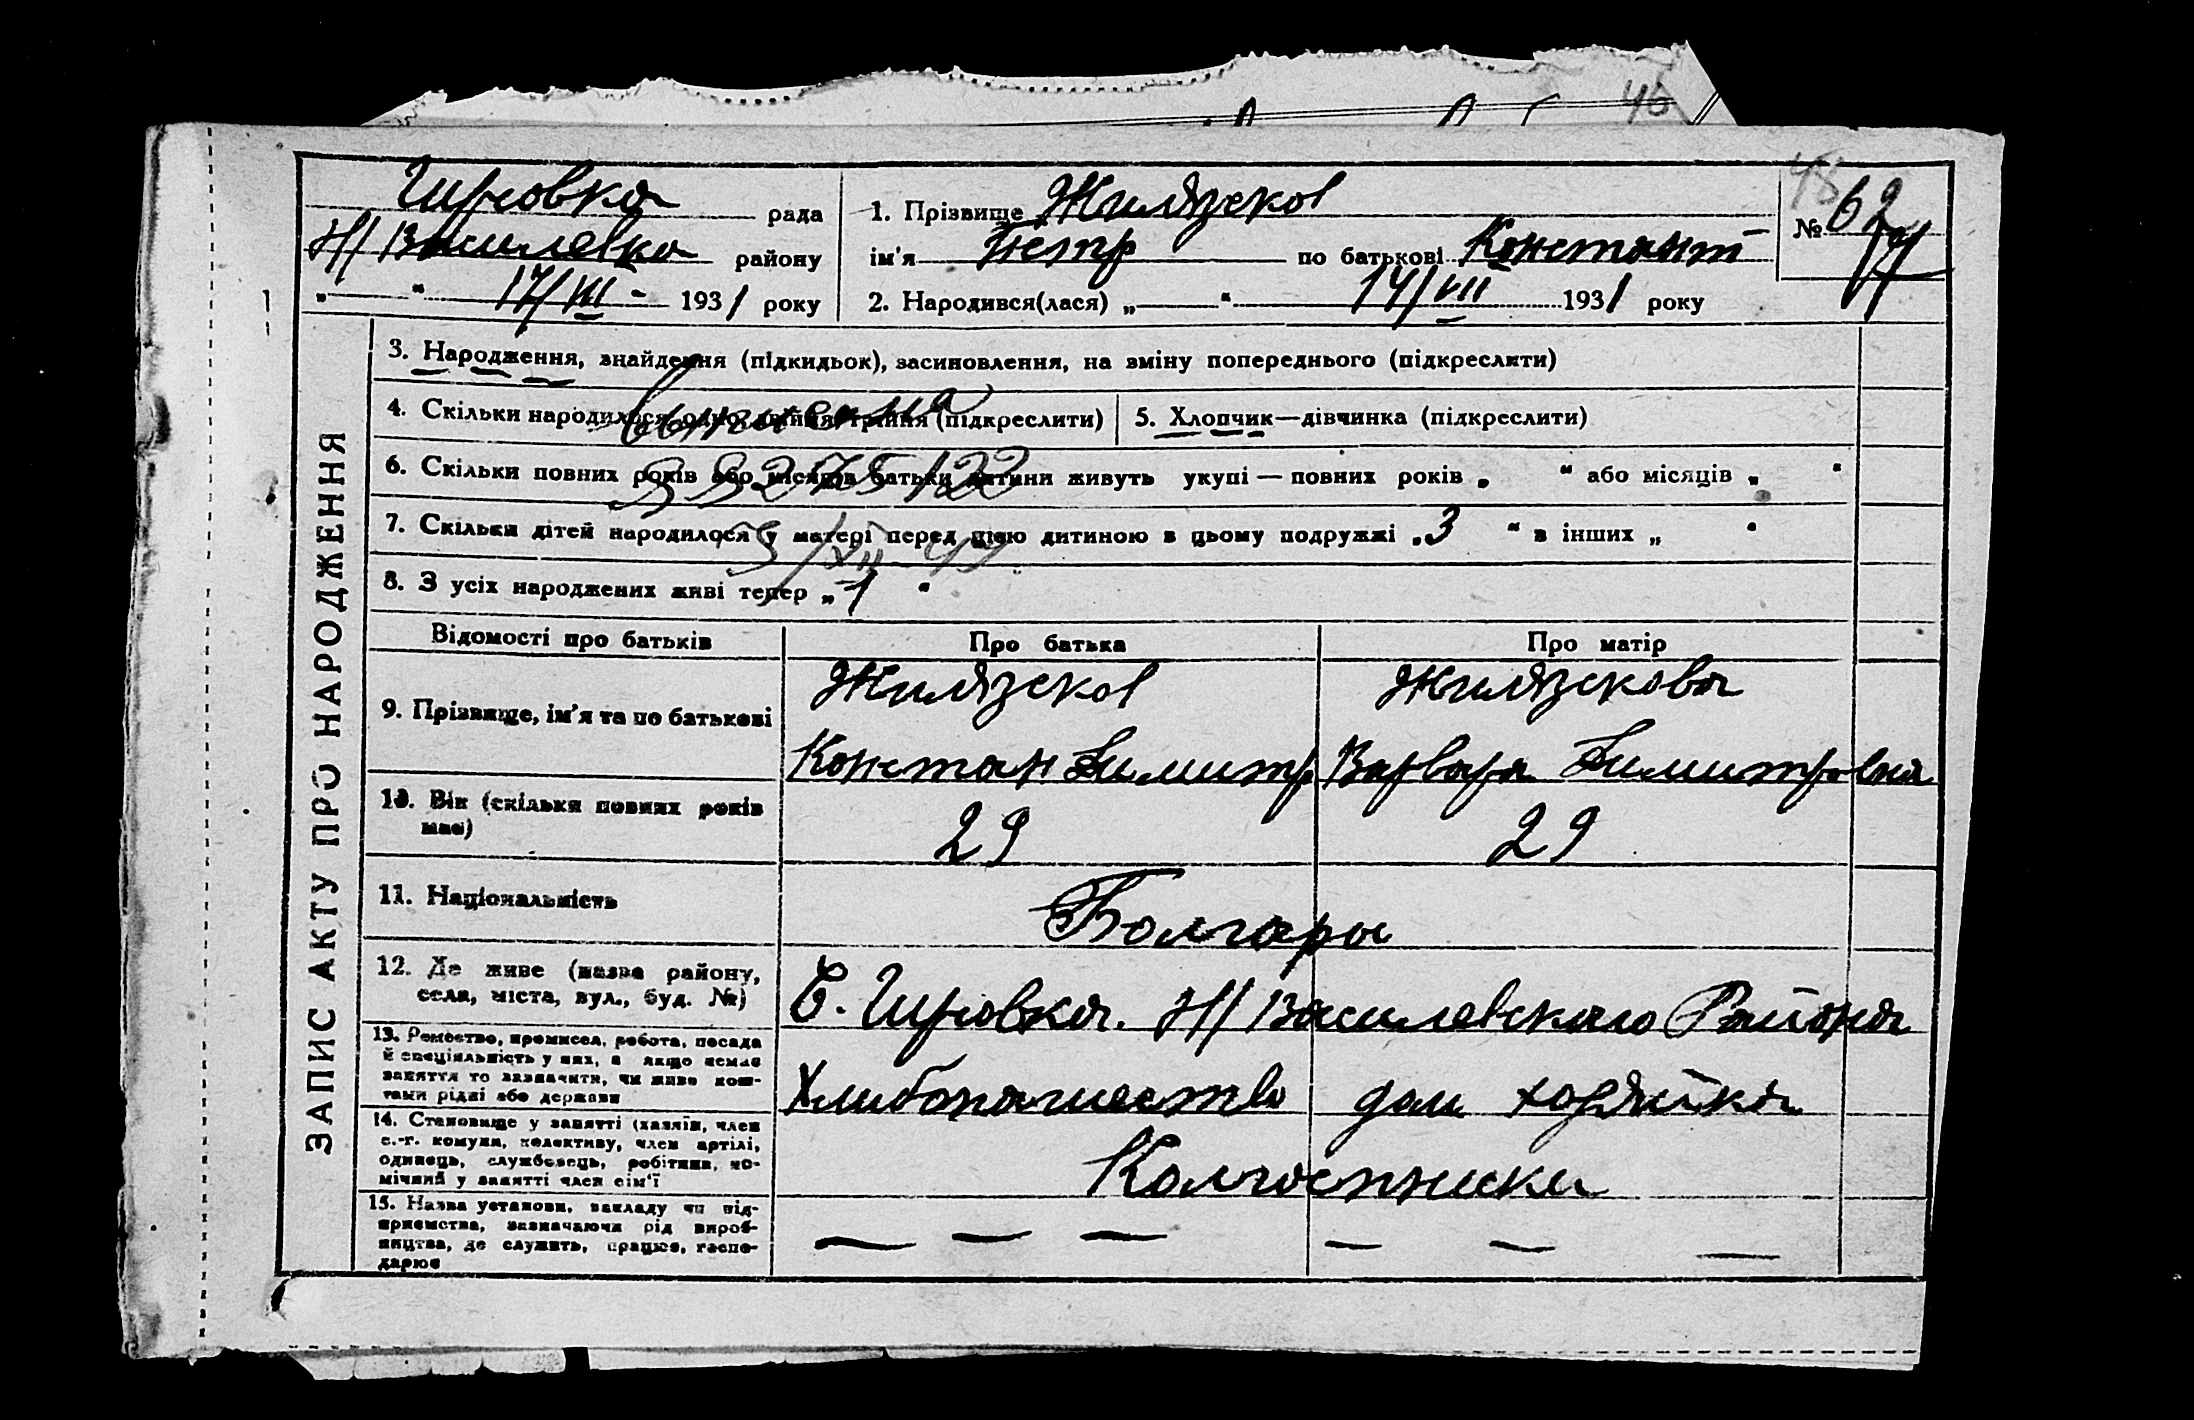 46
48
Гирсовка рада
Н/Василевка району
„ " 17/VIII - 1931 року
1. Прізвище Жилязсков
ім'я Петр по батькові Констант
2. Народився(лася) „ " 14/VIII 1931 року
№ 62
ЗАПИС АКТУ ПРО НАРОДЖЕННЯ
3. Народження, знайдення (підкидьок), засиновлення, на зміну попереднього (підкреслити)
4. Скільки народилося одно, двійня, трійня (підкреслити)
5. Хлопчик—дівчинка (підкреслити)
6. Скільки повних років або місяців батьки дитини живуть укупі — повних років „ " або місяців „ "
7. Скільки дітей народилося у матері перед цією дитиною в цьому подружжі „3 " в інших „ "
8. З усіх народжених живі тепер „1 "
Відомості про батьків Про батька Про матір
9. Прізвище, ім'я та по батькові
Жилязсков Жилязскова
Констан Димитр Варвара Димитровна
10. Вік (скільки повних років
має)
29 29
11. Національність
Болгары
12. Де живе (назва району,
села, міста, вул., буд. №)
С. Гирсовка. Н/Василевского Района
13. Ремество, промисел, робота, посада
й спеціяльність у них, а якщо немає
заняття то зазначити, чи живе кош-
тами рідні або держави
Хлибопашество дом хозяйка
14. Становище у занятті (хазяїн, член
с.-г. комуни, колективу, член артілі,
одинець, службовець, робітник, по-
мічний у занятті член сім'ї
Колгоспники
15. Назва установи, закладу чи під-
приємства, зазначаючи рід вироб-
ництва, де служить, працює, госпо-
дарює
— — — — — —